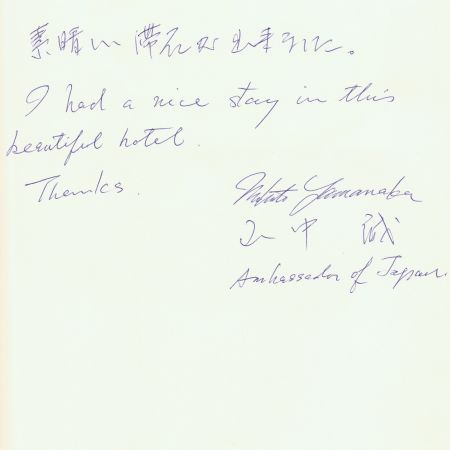 素晴しい滞在が出来ました。
I had a nice stay in this
beautiful hotel.
Thanks.
Makoto Yamanaka
山中 誠
Ambassador of Japan.